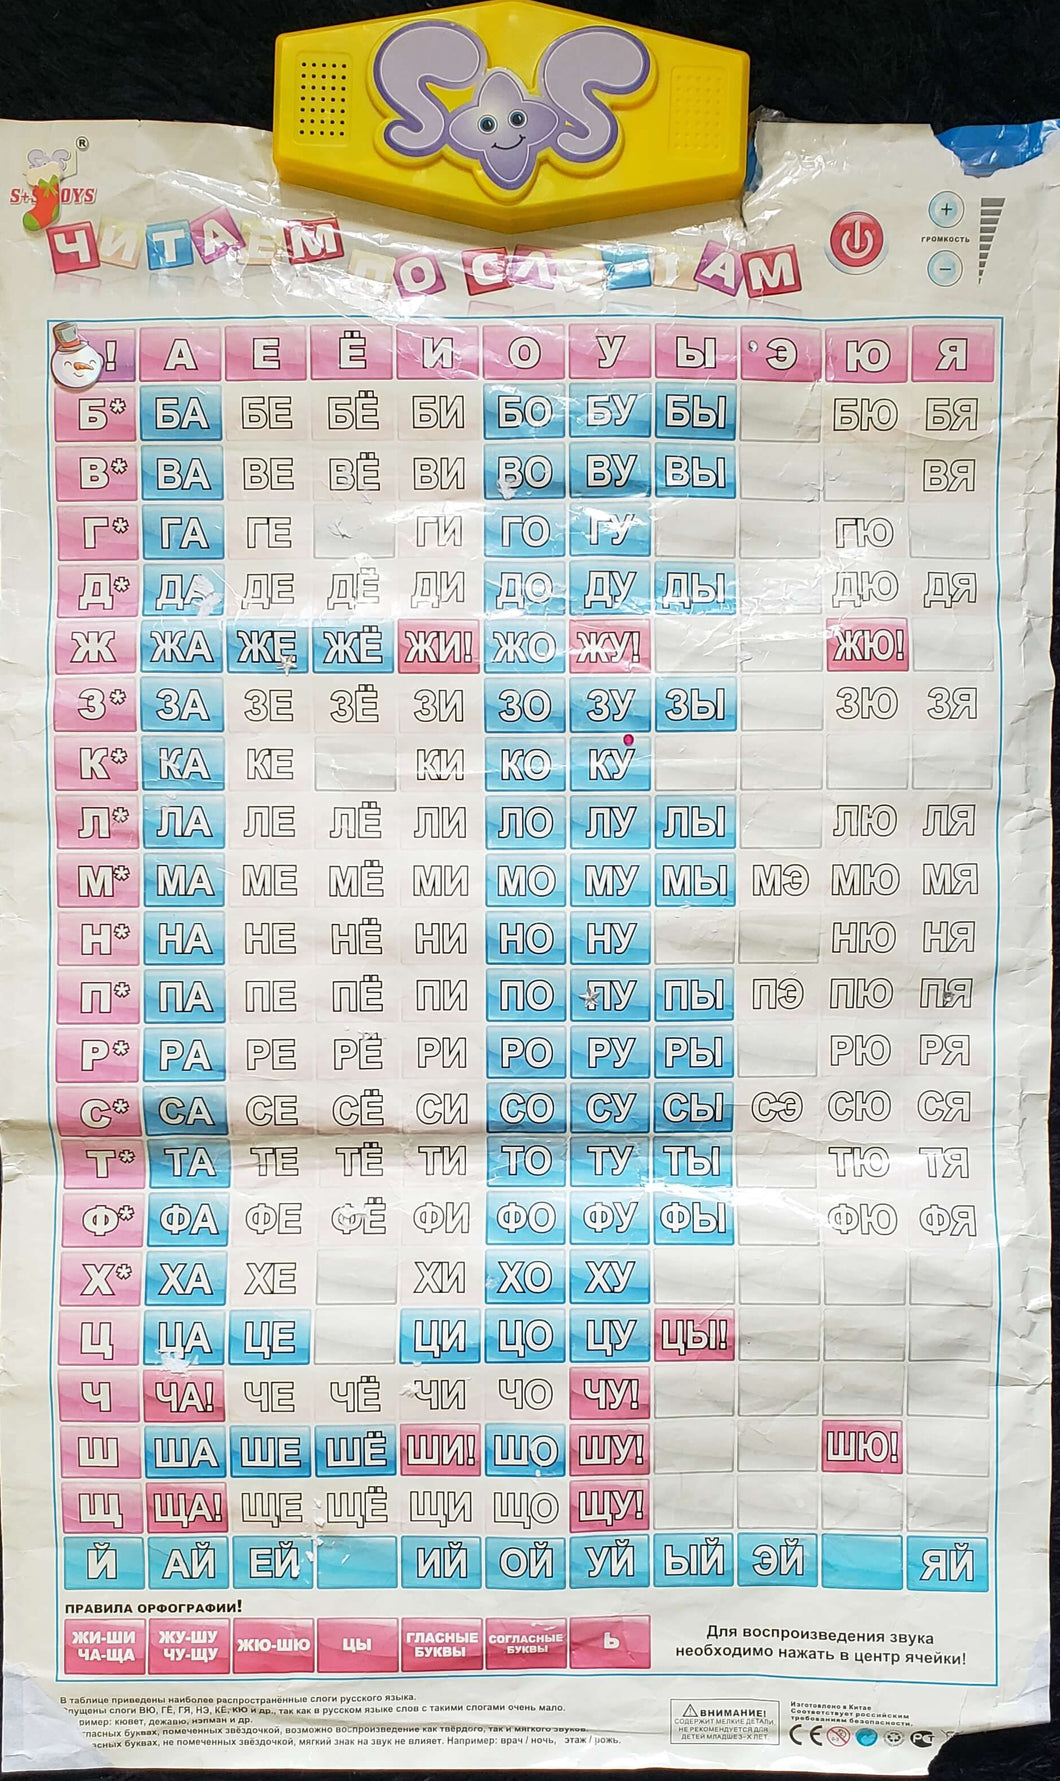 SS
®
S+S TOYS
ЧИТАЕМ ПО СЛОГАМ
ГРОМКОСТЬ
! А Е Ё И О У Ы Э Ю Я
Б* БА БЕ БЁ БИ БО БУ БЫ БЮ БЯ
В* ВА ВЕ ВЁ ВИ ВО ВУ ВЫ ВЯ
Г* ГА ГЕ ГИ ГО ГУ ГЮ
Д* ДА ДЕ ДЁ ДИ ДО ДУ ДЫ ДЮ ДЯ
Ж ЖА ЖЕ ЖЁ ЖИ! ЖО ЖУ! ЖЮ!
З* ЗА ЗЕ ЗЁ ЗИ ЗО ЗУ ЗЫ ЗЮ ЗЯ
К* КА КЕ КИ КО КУ
Л* ЛА ЛЕ ЛЁ ЛИ ЛО ЛУ ЛЫ ЛЮ ЛЯ
М* МА МЕ МЁ МИ МО МУ МЫ МЭ МЮ МЯ
Н* НА НЕ НЁ НИ НО НУ НЮ НЯ
П* ПА ПЕ ПЁ ПИ ПО ПУ ПЫ ПЭ ПЮ ПЯ
Р* РА РЕ РЁ РИ РО РУ РЫ РЮ РЯ
С* СА СЕ СЁ СИ СО СУ СЫ СЭ СЮ СЯ
Т* ТА ТЕ ТЁ ТИ ТО ТУ ТЫ ТЮ ТЯ
Ф* ФА ФЕ ФЁ ФИ ФО ФУ ФЫ ФЮ ФЯ
Х* ХА ХЕ ХИ ХО ХУ
Ц ЦА ЦЕ ЦИ ЦО ЦУ ЦЫ!
Ч ЧА! ЧЕ ЧЁ ЧИ ЧО ЧУ!
Ш ША ШЕ ШЁ ШИ! ШО ШУ! ШЮ!
Щ ЩА! ЩЕ ЩЁ ЩИ ЩО ЩУ!
Й АЙ ЕЙ ИЙ ОЙ УЙ ЫЙ ЭЙ ЯЙ
ПРАВИЛА ОРФОГРАФИИ!
ЖИ-ШИ ЧА-ЩА
ЖУ-ШУ ЧУ-ЩУ
ЖЮ-ШЮ
ЦЫ
ГЛАСНЫЕ БУКВЫ
СОГЛАСНЫЕ БУКВЫ
Ь
Для воспроизведения звука
необходимо нажать в центр ячейки!
В таблице приведены наиболее распространённые слоги русского языка.
пущены слоги ВЮ, ГЁ, ГЯ, НЭ, КЁ, КЮ и др., так как в русском языке слов с такими слогами очень мало.
ример: кювет, дежавю, нэпман и др.
гласных буквах, помеченных звёздочкой, возможно воспроизведение как твёрдого, так и мягкого звуков.
асных буквах, не помеченных звёздочкой, мягкий знак на звук не влияет. Например: врач / ночь, этаж / рожь.
ВНИМАНИЕ!
СОДЕРЖИТ МЕЛКИЕ ДЕТАЛИ
НЕ РЕКОМЕНДУЕТСЯ ДЛЯ
ДЕТЕЙ МЛАДШЕ 3-Х ЛЕТ
Изготовлено в Китае
Соответствует российским
требованиям безопасности.
CE 0-3 РСТ